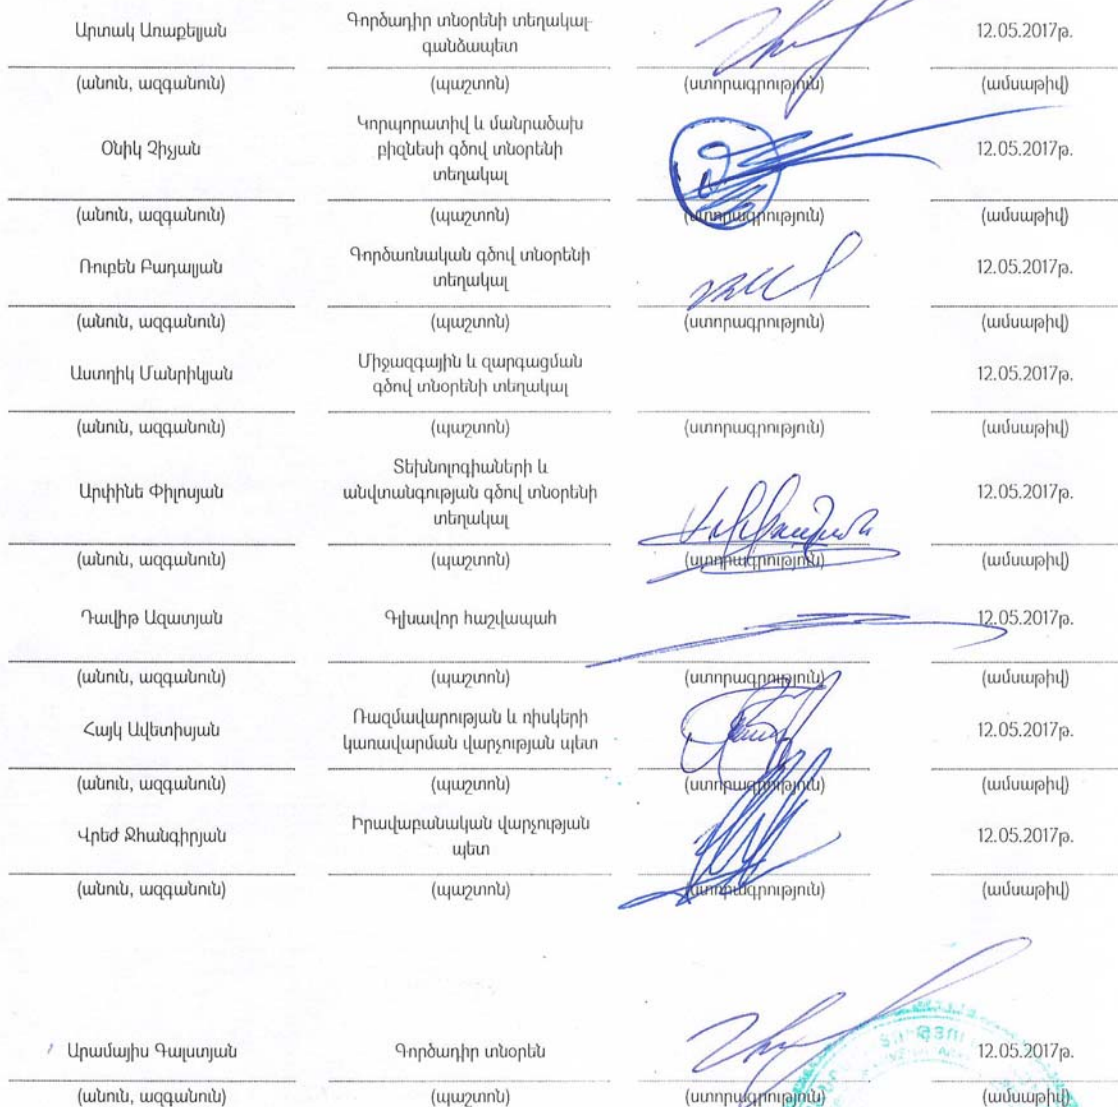 Արտակ Առաքելյան
Գործադիր տնօրենի տեղակալ-
գանձապետ
12.05.2017թ.
(անուն, ազգանուն) (պաշտոն) (ստորագրություն) (ամսաթիվ)
Օնիկ Չիչյան
Կորպորատիվ և մանրածախ
բիզնեսի գծով տնօրենի
տեղակալ
12.05.2017թ.
(անուն, ազգանուն) (պաշտոն) (ստորագրություն) (ամսաթիվ)
Ռուբեն Բադալյան
Գործառնական գծով տնօրենի
տեղակալ
12.05.2017թ.
(անուն, ազգանուն) (պաշտոն) (ստորագրություն) (ամսաթիվ)
Աստղիկ Մանրիկյան
Միջազգային և զարգացման
գծով տնօրենի տեղակալ
12.05.2017թ.
(անուն, ազգանուն) (պաշտոն) (ստորագրություն) (ամսաթիվ)
Արփինե Փիլոսյան
Տեխնոլոգիաների և
անվտանգության գծով տնօրենի
տեղակալ
12.05.2017թ.
(անուն, ազգանուն) (պաշտոն) (ստորագրություն) (ամսաթիվ)
Դավիթ Ազատյան
Գլխավոր հաշվապահ
12.05.2017թ.
(անուն, ազգանուն) (պաշտոն) (ստորագրություն) (ամսաթիվ)
Հայկ Ավետիսյան
Ռազմավարության և ռիսկերի
կառավարման վարչության պետ
12.05.2017թ.
(անուն, ազգանուն) (պաշտոն) (ստորագրություն) (ամսաթիվ)
Վրեժ Ջհանգիրյան
Իրավաբանական վարչության
պետ
12.05.2017թ.
(անուն, ազգանուն) (պաշտոն) (ստորագրություն) (ամսաթիվ)
Արամայիս Գալստյան
Գործադիր տնօրեն
12.05.2017թ.
(անուն, ազգանուն) (պաշտոն) (ստորագրություն) (ամսաթիվ)